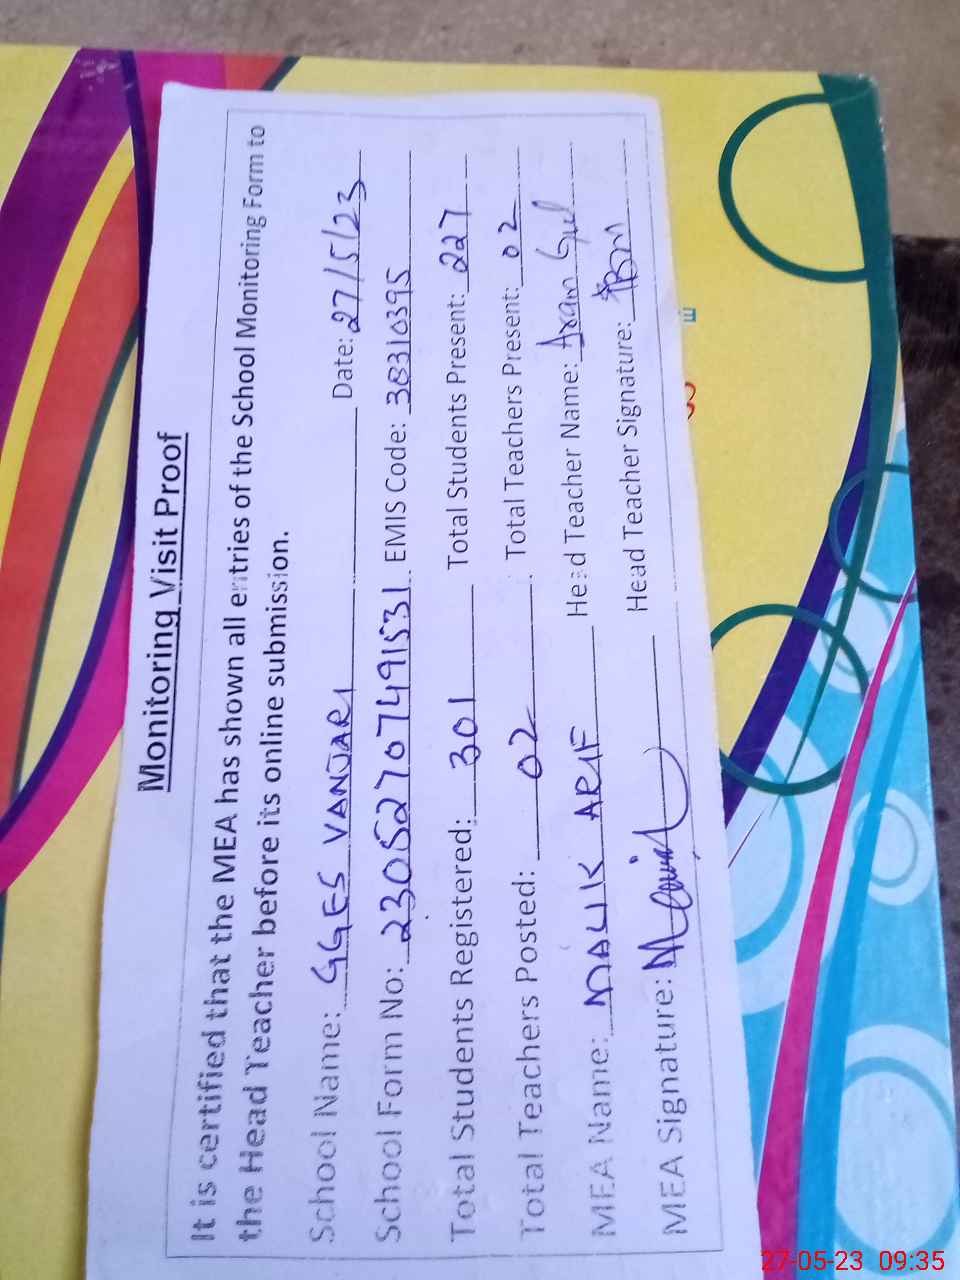 Monitoring Visit Proof
It is certified that the MEA has shown all entries of the School Monitoring Form to
the Head Teacher before its online submission.
School Name: GGES VANJARI Date: 27/5/23
School Form No: 23052707491531 EMIS Code: 38310395
Total Students Registered: 301 Total Students Present: 227
Total Teachers Posted: 02 Total Teachers Present: 02
MEA Name: MALIK ARIF Head Teacher Name: Aram Gul
MEA Signature: Head Teacher Signature:
27-05-23 09:35